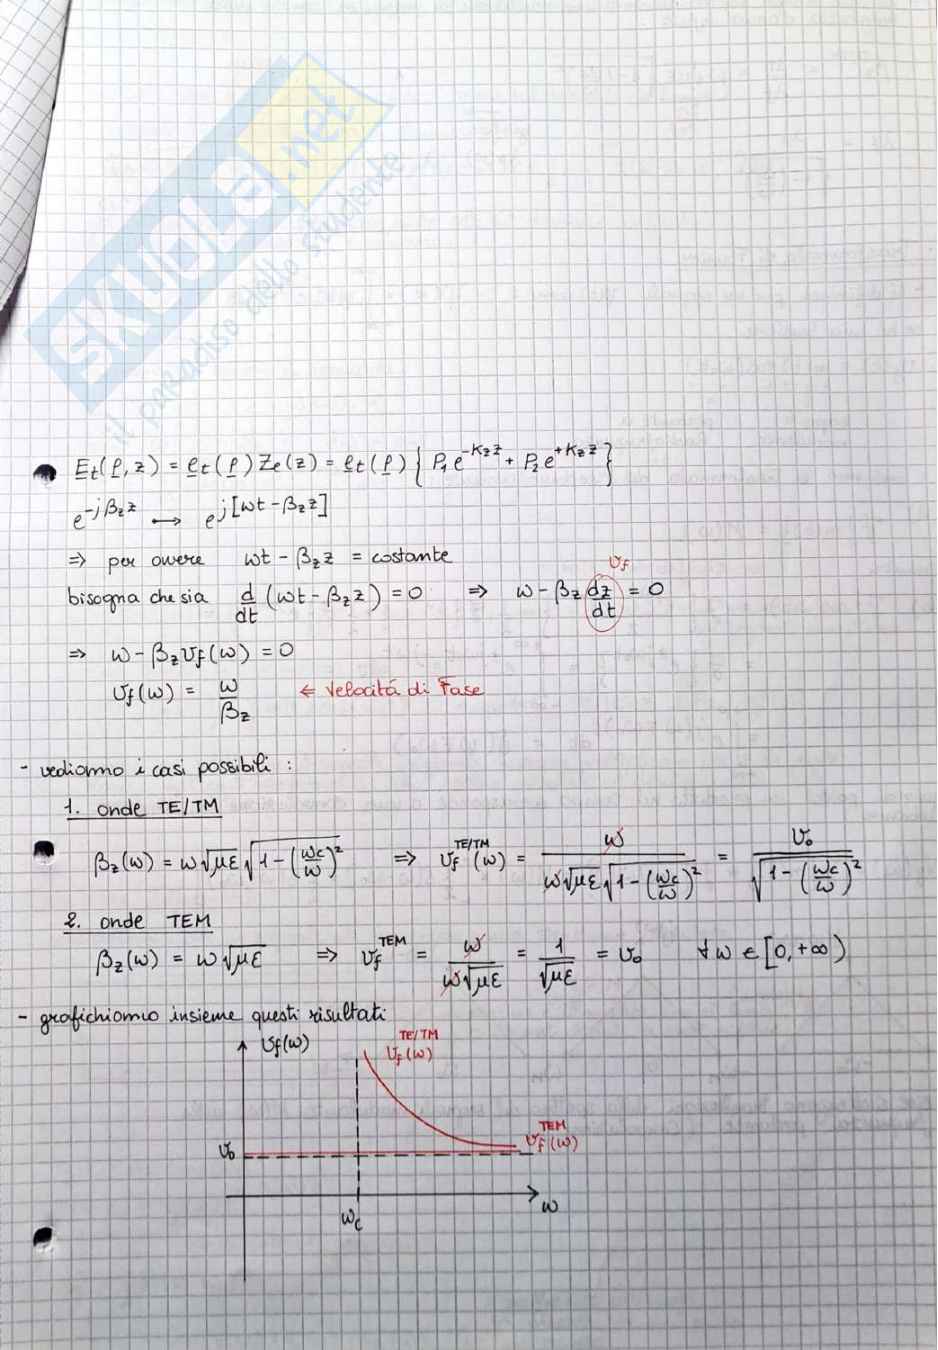 SKUOLA.net
il paradiso dello studente
E̲t(ρ̲,z) = e̲t(ρ̲) Ze(z) = e̲t(ρ̲) { P₁e^{-Kz z} + P₂e^{+Kz z} }
e^{-jβz z} ⟷ e^{j[ωt-βz z]}
⇒ per avere ωt - βz z = costante
bisogna che sia d/dt (ωt - βz z) = 0 ⇒ ω - βz dz/dt = 0 vf
⇒ ω - βz vf(ω) = 0
vf(ω) = ω/βz ⇐ velocitá di Fase
- vediamo i casi possibili :
1. onde TE/TM
βz(ω) = ω√με √(1-(ωc/ω)²) ⇒ vf^{TE/TM}(ω) = ω/(ω√με √(1-(ωc/ω)²)) = v₀/√(1-(ωc/ω)²)
2. onde TEM
βz(ω) = ω√με ⇒ vf^{TEM} = ω/(ω√με) = 1/√με = v₀ ∀ω ∈ [0,+∞)
- grafichiamo insieme questi risultati
vf(ω)
vf^{TE/TM}(ω)
vf^{TEM}(ω)
v₀
ωc
ω